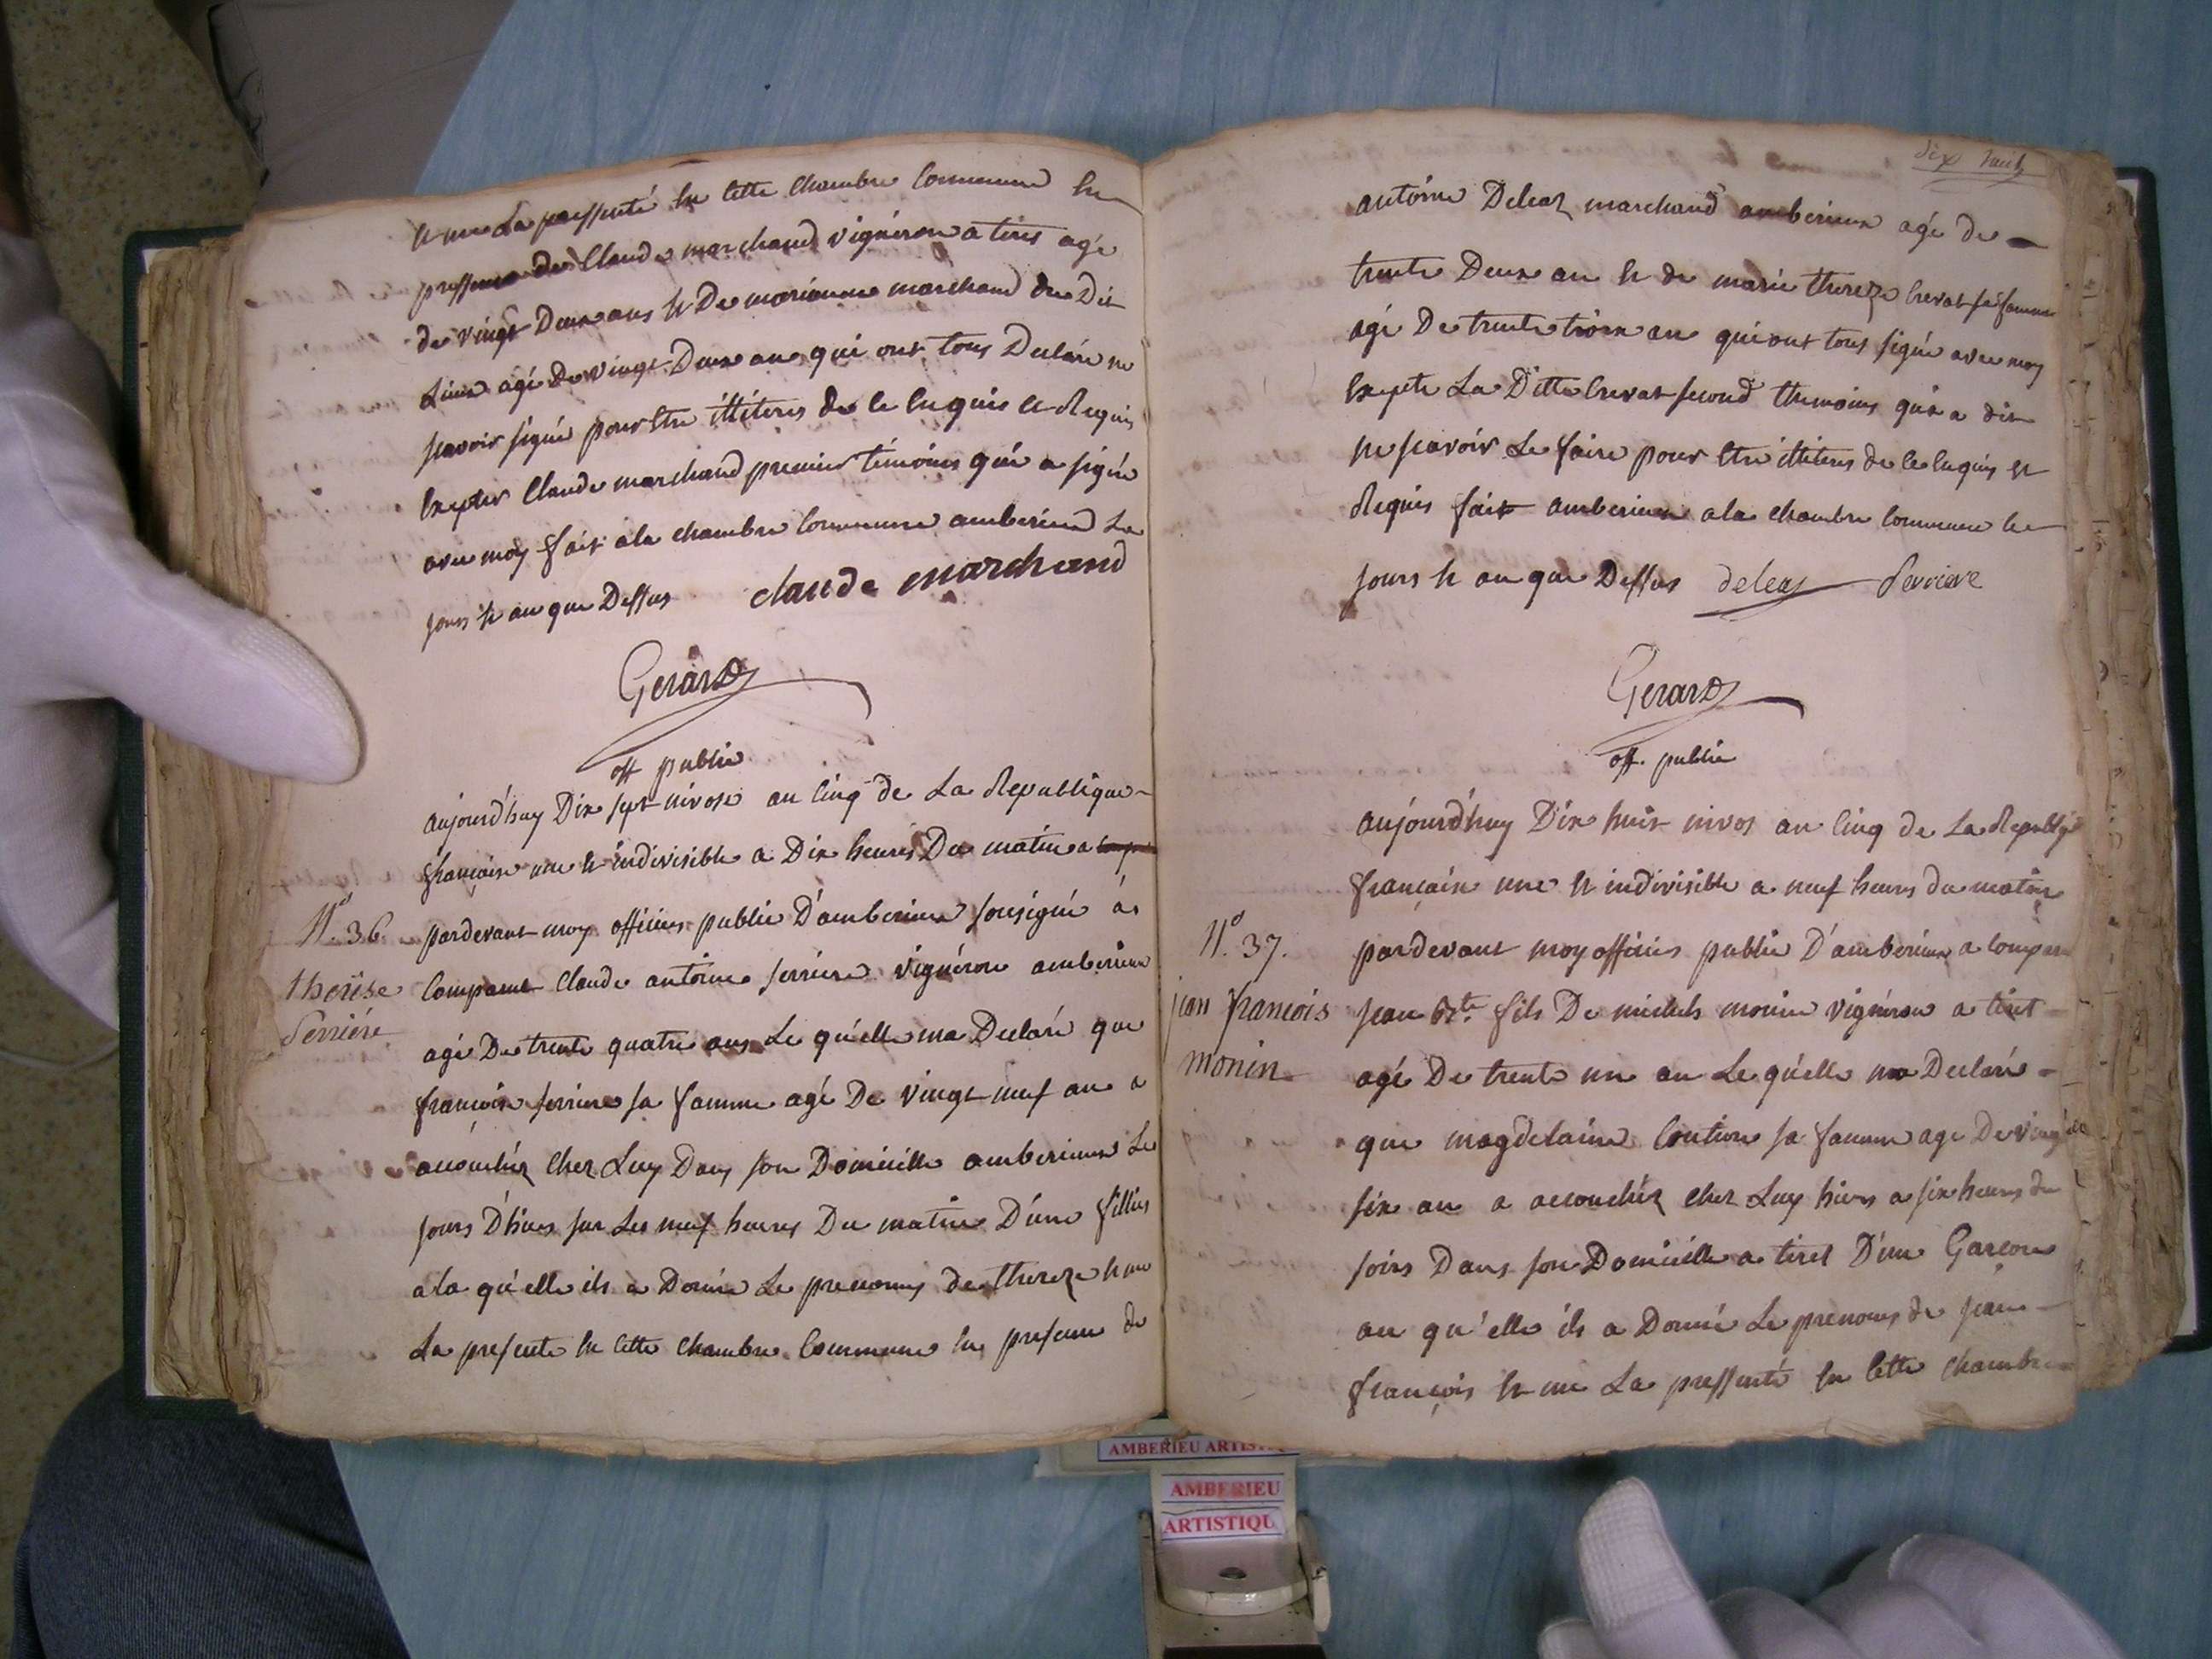 et me La pressenté en Cette Chambre Commune En
pressence de Claude marchand vigneron a tiret agé
de vingt Deux ans et De marianne marchand du Dit
Lieux agé De vingt Deux ans qui ont tous Declaré ne
scavoir signé pour etre illiteres de ce Enquis et Requis
Excepter Claude marchand premier témoins qui a signé
avec moy fait a la chambre Commune amberieux Le
jours et an que Dessus claude marchand
Gerard
off public
aujourd'huy Dix sept nivose an Cinq de La Republique
française une et indivisible a Dix heures Du matin a
Nº. 36 pardevant moy officier public D'amberieux sousigné às
thérèse Comparut Claude antoine serriere vigneron amberieux
Serriére agé De trente quatre ans Le qu'elle ma Declaré que
françoise serriere sa famme agé De vingt neuf an a
accouchéz Chez Luy Dans son Domicille amberieux Le
jours D'hiers sur Les neuf heures Du matin D'une fillies
a la qu'elle ils a Donné Le prenoms de thereze et me
La presente En Cette Chambre Commune En presence de
dix huit
antoine Deleaz marchand amberieux agé de
trente Deux an et de marie thereze Crevat sa famme
agé De trente troix an qui ont tous signé avec moy
Excepte La Ditte Crevat second themoins qui a dit
ne scavoir Le faire pour etre illiteres de ce Enquis et
Requis fait amberieux a la chambre Commune Le
jours et an que Dessus deleaz Serriere
Gerard
off. public
aujourd'huy Dix huit nivos an Cinq de La Republiq
française une et indivisible a neuf heures du matin
Nº. 37. pardevant moy officies public D'amberieux a Compar
jean françois jean Bte. fils De michels monin vigneron a tiret
monin agé De trente un an Le qu'elle ma Declaré
que magdelaine Couture sa famme age De vingt
six an a accouchéz chez Luy hiers a six heures du
soirs Dans son Domicille a tiret D'un Garçon
au qu'elle ils a Donné Le prenoms de jean
françois et me La pressenté En Cette Chambre
AMBERIEU ARTIS
AMBERIEU
ARTISTIQU